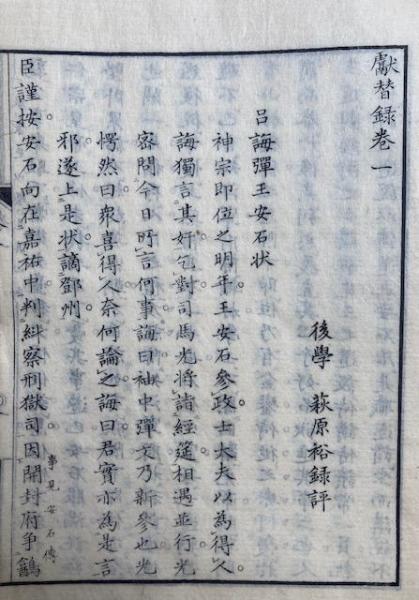 獻替録卷一
後學 萩原裕録評
呂誨彈王安石狀
神宗即位之明年。王安石參政。士大夫以為得人。
誨獨言其奸乞對。司馬光將詣經筵。相遇並行。光
密問今日所言何事。誨曰。袖中彈文。乃新參也。光
愕然曰。衆喜得人。奈何論之。誨曰。君實亦為是言
邪。遂上是狀。謫鄧州。
臣謹按。安石向在嘉祐中判糾察刑獄司。因開封府爭鶉
事見安石傳